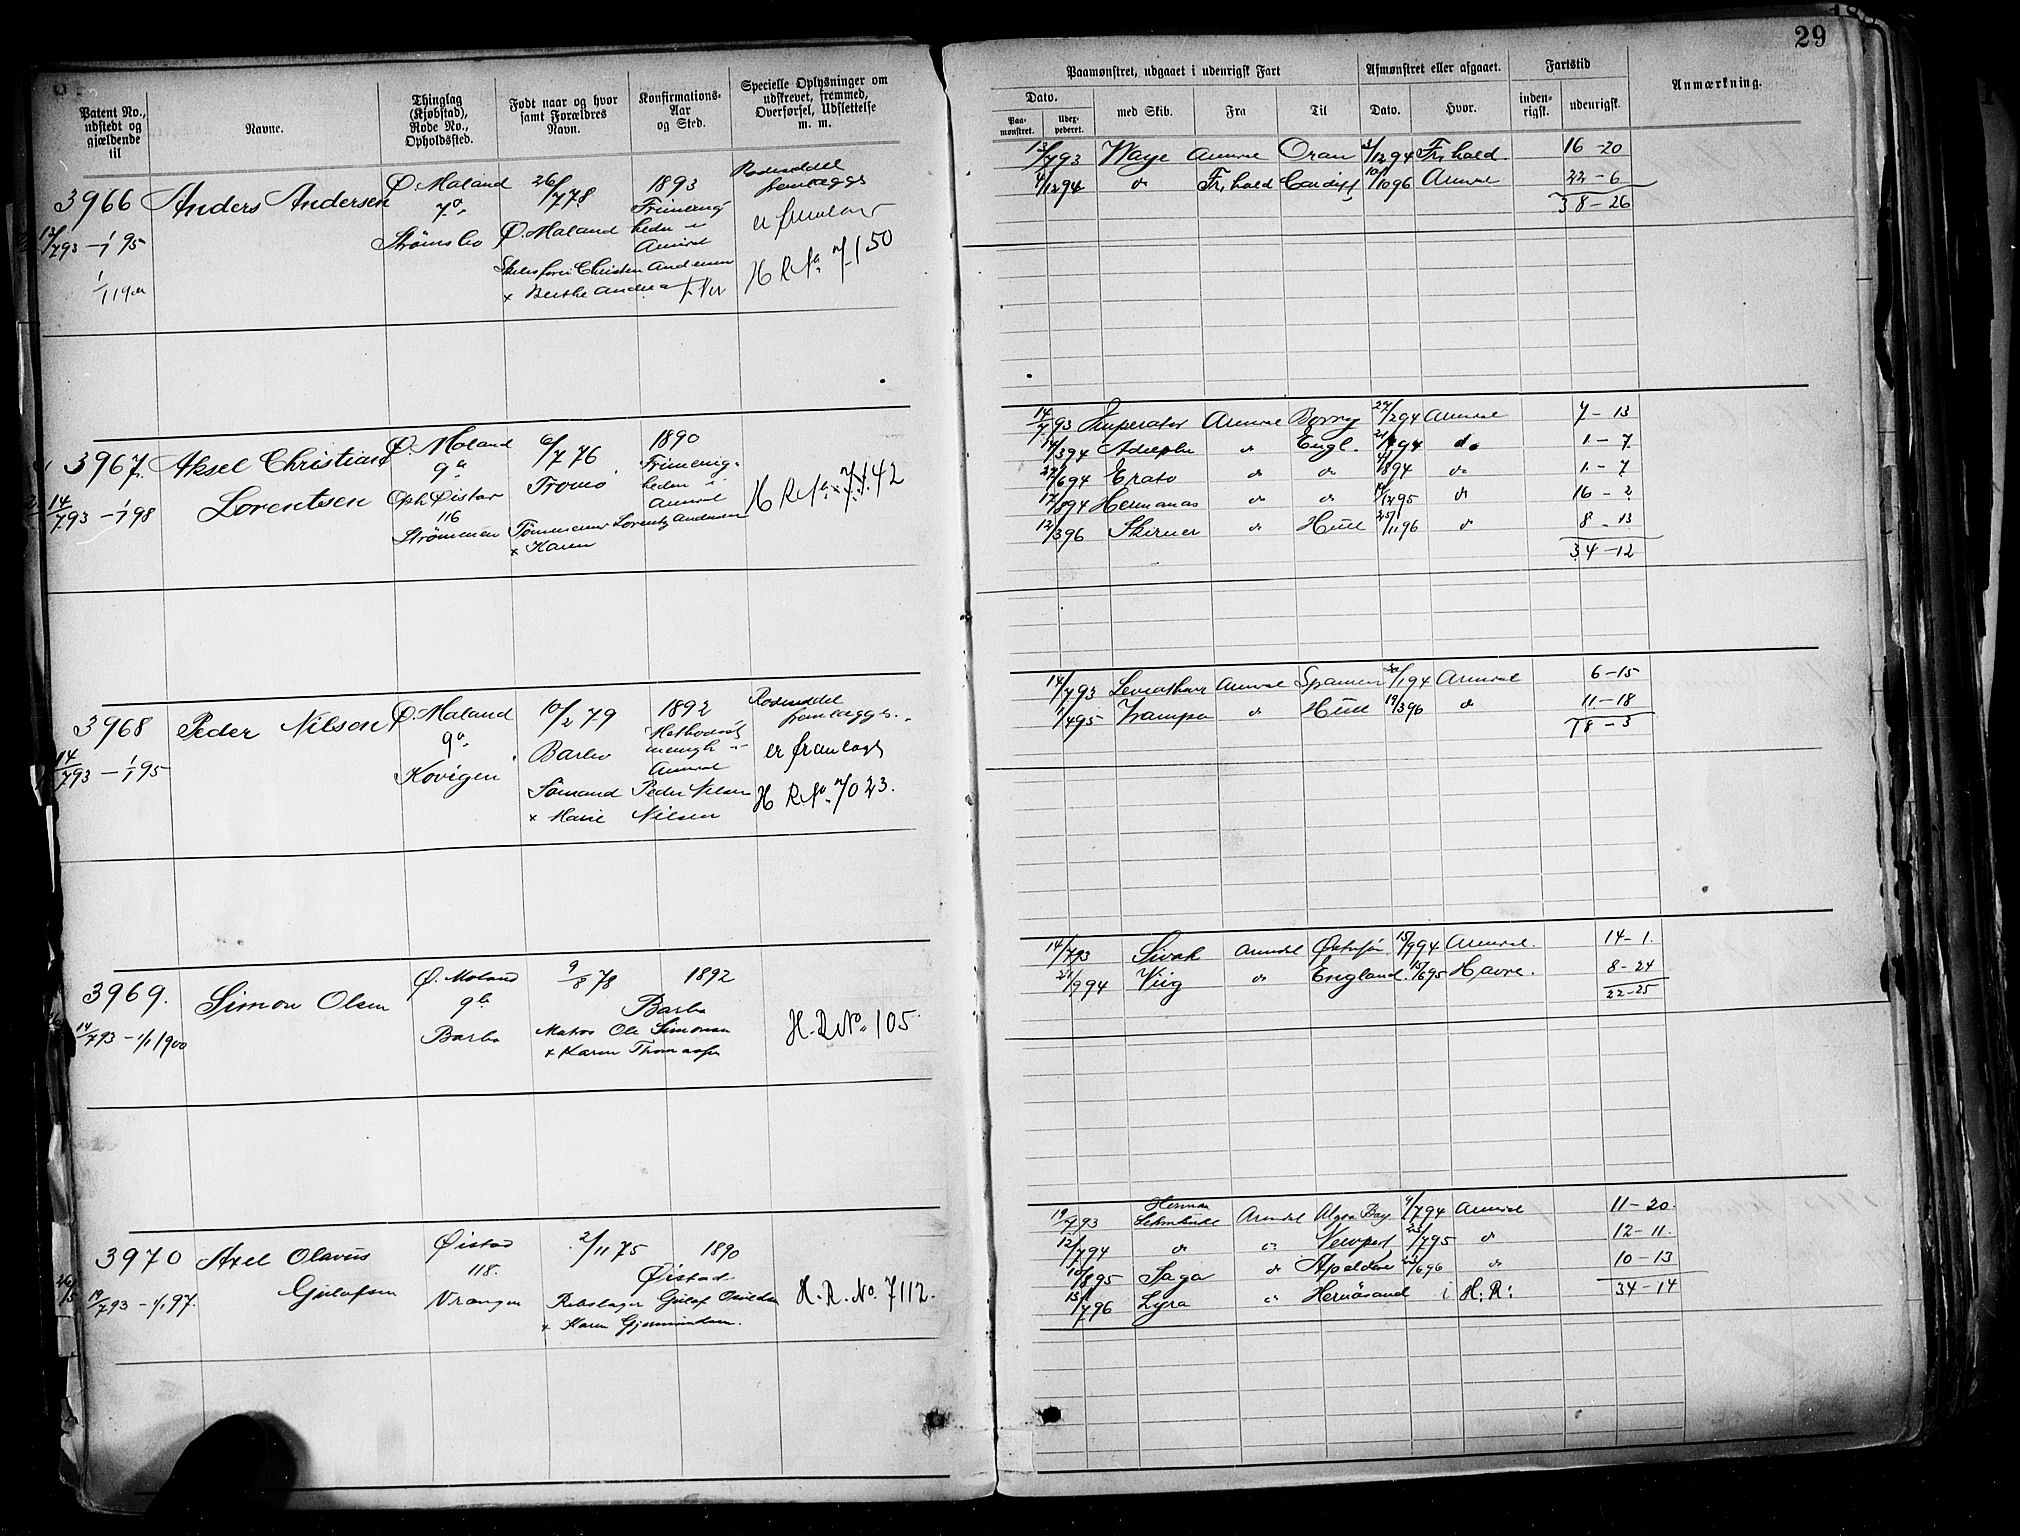 29
Patent No., udstedt og gjældende til
Navne.
Thinglag (Kjøbstad), Rode No., Opholdssted.
Født naar og hvor samt Forældres Navn.
Konfirmations-Aar og Sted.
Specielle Oplysninger om udskrevet, fremmed, Overførsel, Udslettelse m. m.
Paamønstret, udgaaet i udenrigsk Fart
Dato.
Paamønstret.
Udexpederet.
med Skib.
Fra
Til
Afmønstret eller afgaaet.
Dato.
Hvor.
Fartstid
indenrigsk.
udenrigsk.
Anmærkning.
3966 Anders Andersen Ø. Moland 26/7 78 1893 Rodeseddel
7a Frimenig fremlægges
13/7 93 – 1/1 95 Strømsbo Ø. Moland heder i er fremlagt
Arendal
Christen Andersen H R No 7150
1/1 19 x Berthe Andrea
13/7 93 Waye Arendal Oran 3/12 94 Frhald. 16 – 20
4/12 94 do Frhald Cardiff 10/10 96 Arendal 22 – 6
38 – 26
3967. Aksel Christian Ø. Moland 6/7 76 1890
Lorentsen 9a Tromø Frimenig-
14/7 93 – 1/1 98 Oph. Øistad heder i H R No. 7142
116 Arendal
Strømmen Tømmermand Lorentz Andersen
x Karen
14/7 93 Imperator Arendal Borry 27/2 94 Arendal 7 – 13
14/3 94 Adelphe do Engl. 21/4 94 do 1 – 7
27/6 94 Erato do do 4/8 94 do 1 – 7
17/8 94 Hermanos do do 19/12 95 do 16 – 2
12/3 96 Skirner do Hull 25/11 96 do 8 – 13
34 – 12
3968 Peder Nilsen Ø. Moland 10/2 79 1892 Rodeseddel
9a Methodist fremlægges.
14/7 93 – 1/1 95 Barbo menigh. i er fremlagt
Kovigen Arendal
Sømand Peder Nilsen H R. No. 7023.
x Marie Nilsen
14/7 93 Leviathan Arendal Spanien 30/1 94 Arendal 6 – 15
1/4 95 Trampo do Hull 19/3 96 do 11 – 18
18 – 3
3969. Simon Olsen Ø. Moland 9/8 78 1892
9b Barbo
14/7 93 – 1/1 1900 Barbo Matros Ole Simonsen H. R No. 105.
x Karen Thomassen
14/7 93 Sivah Arendal Østersjøen 15/9 94 Arendal. 14 – 1.
21/9 94 Viig do England. 15/6 95 Havre. 8 – 24
22 – 25
3970 Axel Olavus Øistad 2/11 75 1890
Gulofsen 118. Øistad
19/7 93 – 1/1 97. Vrangen Rebslager Gulof H. R. No. 7112.
x Karen Gjermundsen.
19/7 93 Herman Lehmkuhl Arendal Algoa Bay 9/7 94 Arendal 11 – 20.
12/7 94 do do Newport 23/7 95 do 12 – 11.
10/8 95 Saga do 22/6 96 do 10 – 13
15/7 96 Lyra do Hernösand i H. R: 34 – 14